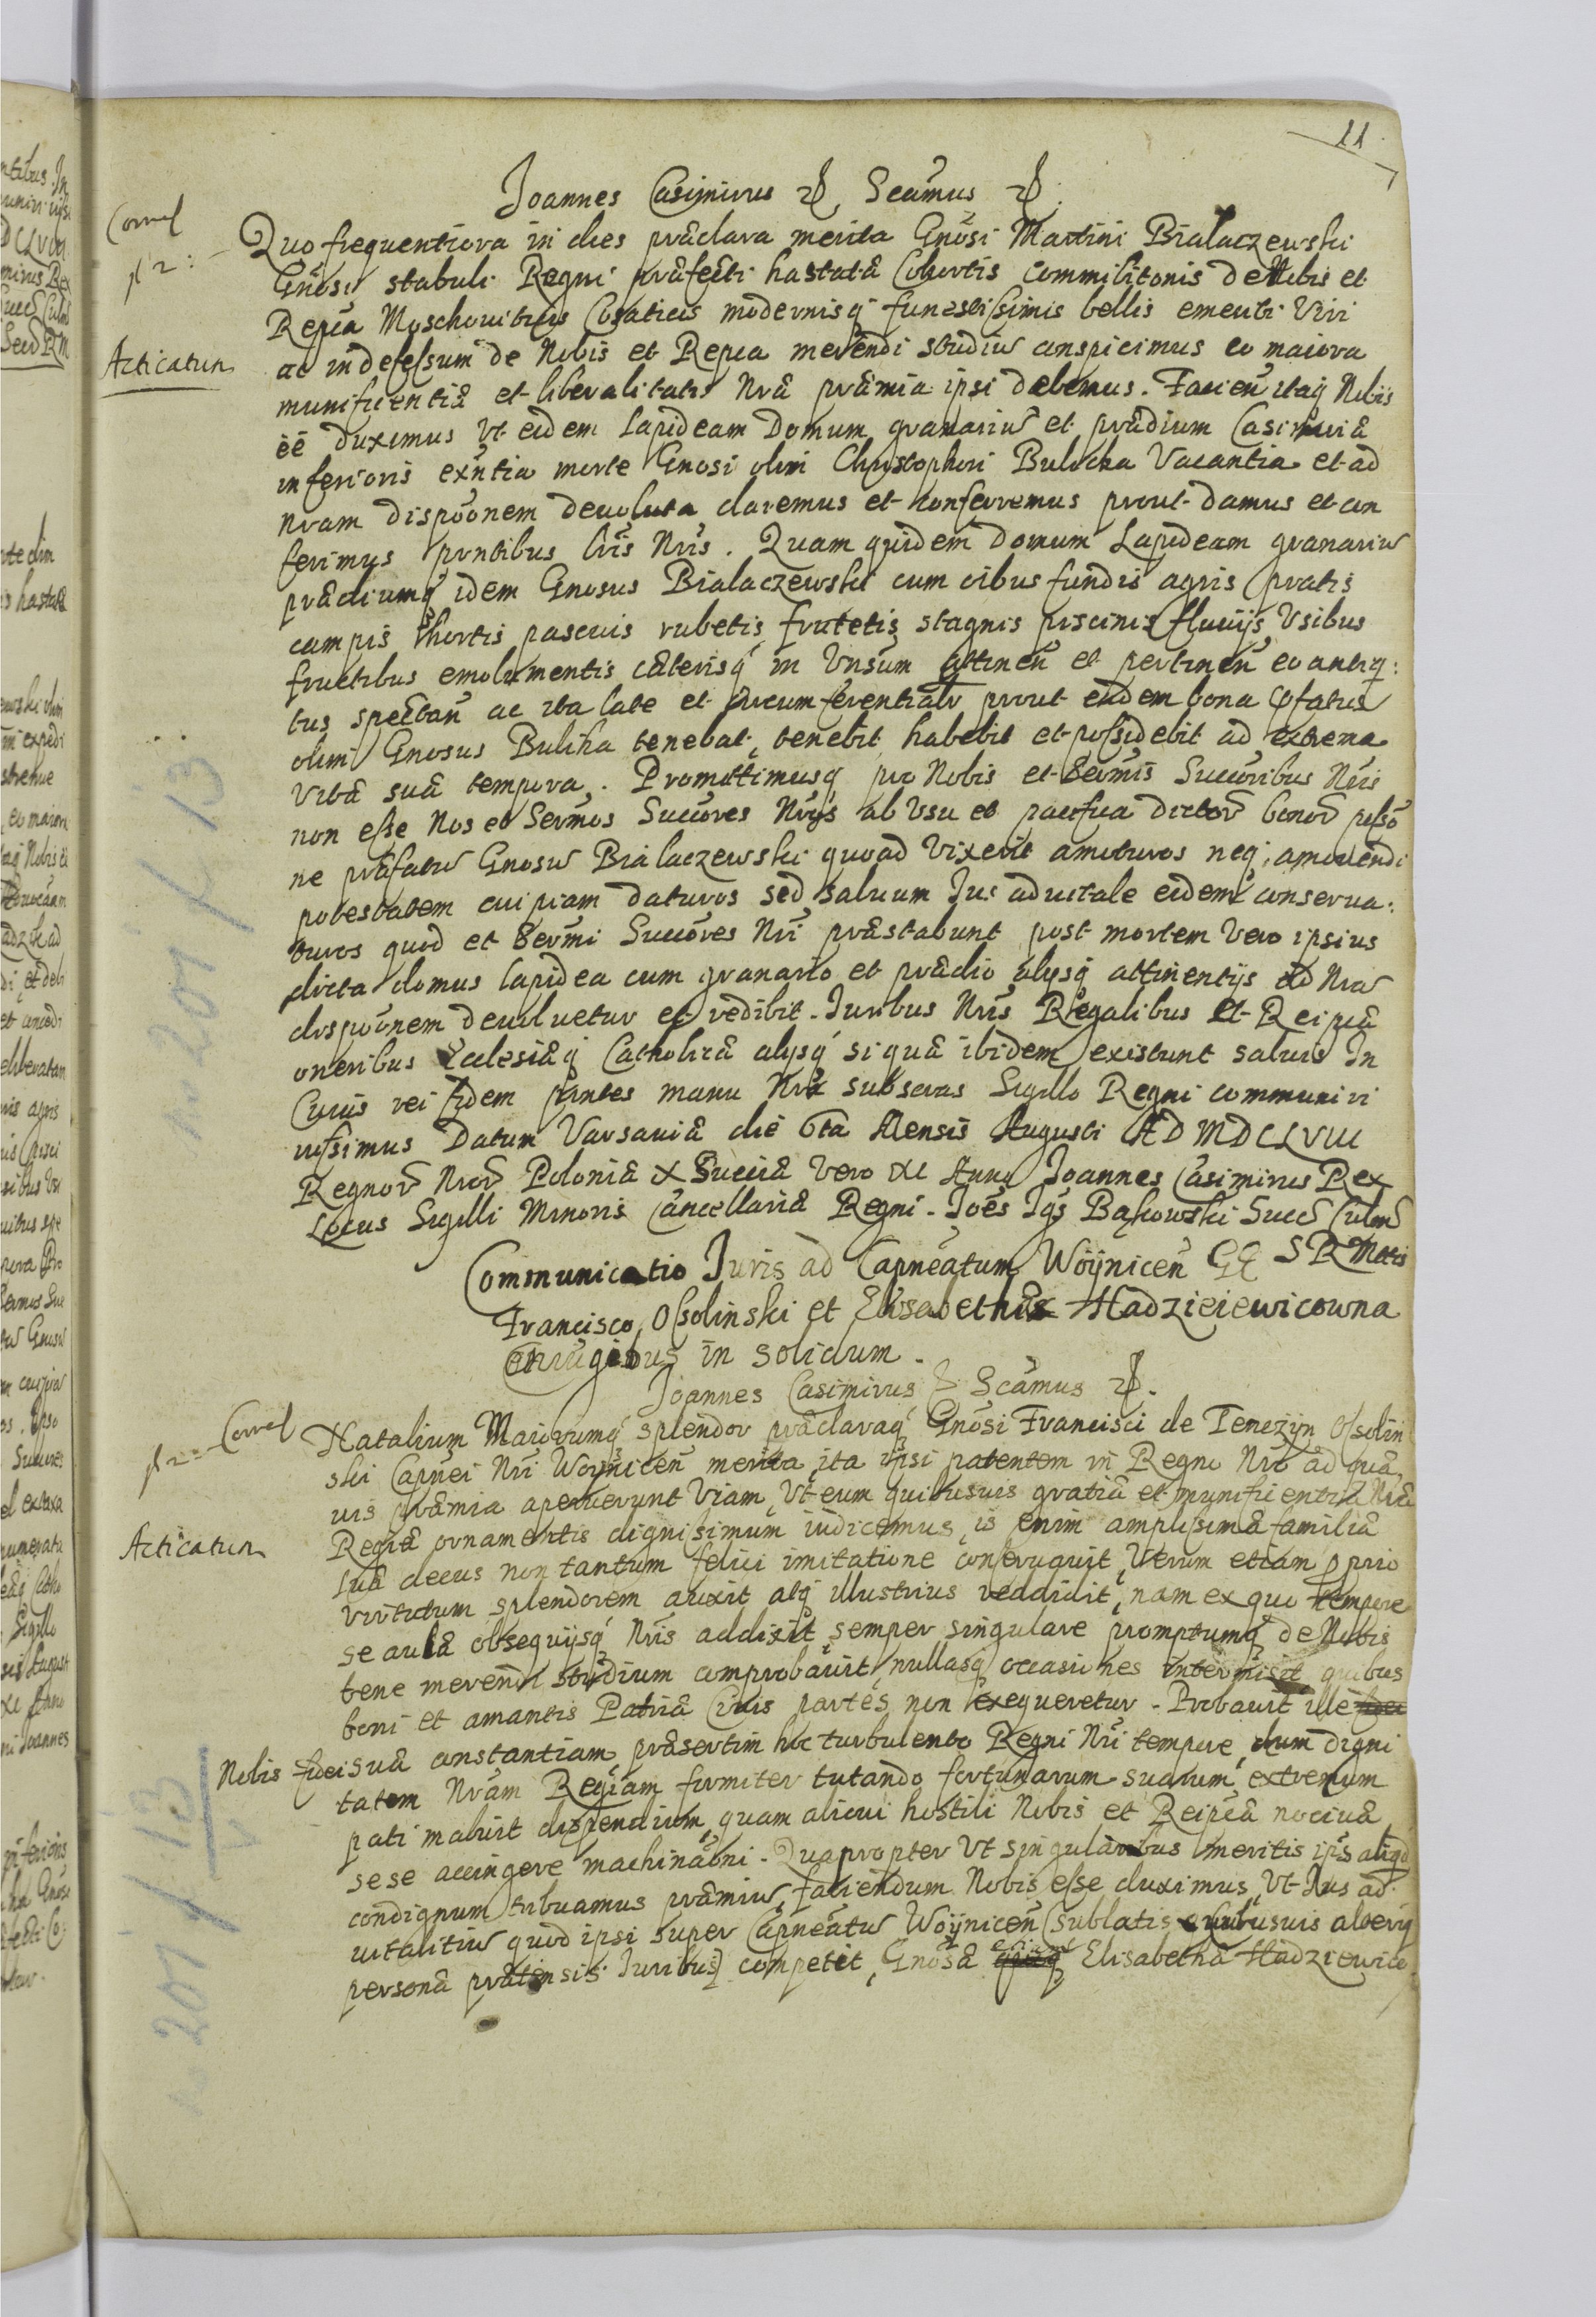 11
Joannes Casimirus etc. Scãmus etc.
Correl
Quo frequentiora in dies præclara merita Gnõsi Martini Bialaczewski
Gnõsi stabuli Regni præfecti hastatæ Cohortis commilitonis de Nobis et
Repca Moschouiticis Cosaticis modernisq funestissimis bellis emeriti Viri
Acticatum
ac indefessum de Nobis et Repca merendi studiũ conspicimus eo maiora
munificentiæ et liberalitatis Nræ præmia ipsi debemus. Facien itaq Nobis
ẽẽ duximus Vt eidem Lapideam Domum granariũ et prædium Casimiriæ
inferioris exñtia morte Gnosi olim Christophori Bulicha Vacantia et ad
nram dispõonem deuoluta daremus et conferremus prout damus et con
ferimus pñntibus lris Nris. Quam quidem Domum Lapideam granariũ
prædiumq idem Gnosus Bialaczewski cum oibus fundis agris pratis
campis hortis pascuis rubetis frutetis stagnis piscinis fluuijs Vsibus
fructibus emolumentis cæterisq in Vnsum attineñ et pertineñ eo antiq:
tus spectañ ac ita late et circumferentialr prout eadem bona pfatus
olim Gnosus Buliha tenebat, tenebit habebit et possidebit ad extrema
Vitæ suæ tempora. Promittimusq pro Nobis et Sermis Succoribus Nris
non esse Nos et Sermos Succores Nros ab Vsu et pacifica dictor bonor possõ
ne præfatũ Gnosũ Bialaczewski quoad Vixerit amoturos neq, amouendi
potestatem cuipiam daturos sed saluum Jus aduitale eidem conserua:
turos quod et Sermi Succores Nri præstabunt post mortem Vero ipsius
dicta domus lapidea cum granario et prædio alysq attinentijs ad Nrã
dispõonem deuoluetur et redibit. Juribus Nris Regalibus et Reipcæ
oneribus Ecclesiæq Catholicæ alysq si quæ ibidem existunt saluis In
Cuius rei fidem pñntes manu Nra subscras Sigillo Regni communiri
iussimus Datum Varsauiæ die 6ta Mensis Augusti AD MDCLVIII
Regnor Nror Poloniæ X Sueciæ Vero XI Anno Joannes Casimirus Rex
Locus Sigilli Minoris Cancellariæ Regni. Joẽs Igs Bąkowski Succ Culm
Communicatio Juris ad Capneatum Woijniceñ GG SRMttis
Francisco Ossolinski et Elisabethæ Hadzieiewicowna
Coniugibus in solidum.
Joannes Casimirus etc Scãmus etc.
Correl
Natalium Maiorumq splendor præclaraq Gnõsi Francisci de Tenczÿn Ossolin
ski Capnei Nri Woÿniceñ merita, ita ipsi patentem in Regno Nro ad quæ
uis præmia aperuerunt Viam, Vt eum quibusuis gratiæ et munificentiæ Nræ
Acticatum
Regiæ ornamentis dignissimum iudicemus, is enim amplissimæ familiæ
suæ decus non tantum felici imitatione conseruauit, Verum etiam pprio
virtutum splendorem auxit atq illustrius reddidit, nam ex quo tempore
se aulæ obsequijsq Nris addixit, semper singulare promptumq de Nobis
bene merendi studium comprobauit, nullasq occasiones intermisit quibus
boni et amantis Patriæ Ciuis partes non exequeretur. Probauit ille
Nobis fidei suæ constantiam præsertim hoc turbulento Regni Nri tempore, dum digni
tatem Nram Regiam firmiter tutando fortunarum suarum extremum
pati maluit dispendium, quam alicui hostili Nobis et Reipcæ nociuæ
sese accingere machinãoni. Quapropter Vt singularibus meritis ips aliqd
condignum tribuamus præmiũ, faciendum Nobis esse duximus, Vt Jus ad
uitalitiũ quod ipsi super Capneatũ Woÿniceñ (sublatis quibusuis alterij
personæ prætensis Juribus) competit, Gnosæ etiam Elisabethæ Hadziewico